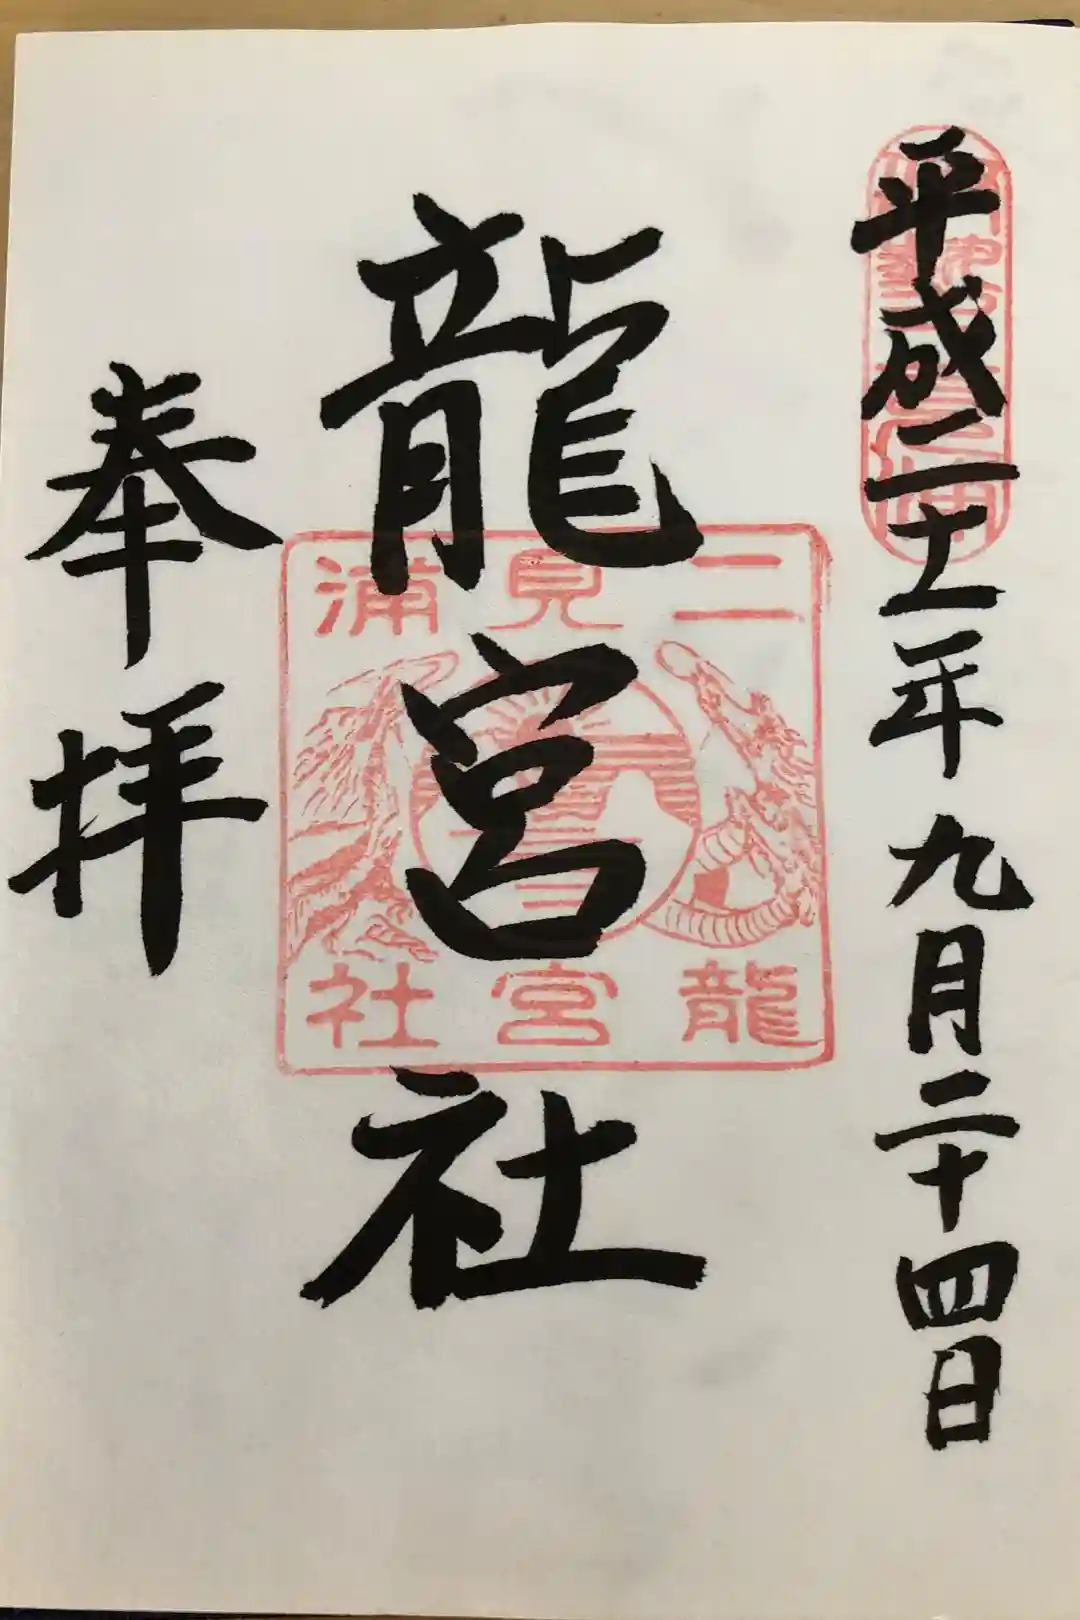 平成二十一年九月二十四日
龍宮社
奉拝
二見浦
龍宮社